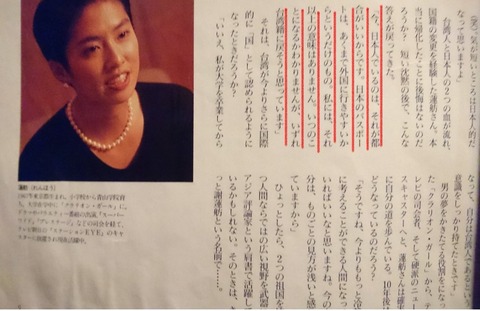 (笑)。気が短いところは日本人的だ
なって思いますよ」
台湾人と日本人の2つの血が流れ、
国籍の変更を経験した蓮舫さん。本
当に帰化したことに後悔はないのだ
ろうか? 短い沈黙の後で、こんな
答えが戻ってきた。
「今、日本人でいるのは、それが都
合がいいからです。日本のパスポー
トは、あくまで外国に行きやすいか
らというだけのもの。私には、それ
以上の意味はありません。いつのこ
とになるかわかりませんが、いずれ
台湾籍に戻そうと思っています」
それは、台湾が今よりさらに国際
的に「国」として認められるように
なったときだろうか?
「いいえ、私が大学を卒業してから
なって、自分は台湾人であるという
意識をしっかり持てたときです」
男の夢をかきたてる役割をになっ
た「クラリオン・ガール」から、テ
レビの司会者、そして硬派のニュー
スキャスターへと、蓮舫さんは確実
に自分の道を歩んでいる。10年後は
どうなっているのだろう?
「そうですね、今よりももっと冷
に考えることができる人間になっ
いればいいなと思います。今の
分は、ものごとの見方が浅いと感
ていますから」
ひょっとしたら、2つの祖国を
つ人間ならではの広い視野を武器
アジア評論家という肩書で活躍し
いるかもしれない。そのときは、
っと謝蓮舫という名前で……。
蓮舫(れんほう)
1967年東京都生まれ。小学校から青山学院育
ち。大学在学中に「クラリオンガール」に。
テレビ朝日の「ステーションEYE」のキャ
スターに抜擢され現在活躍中。